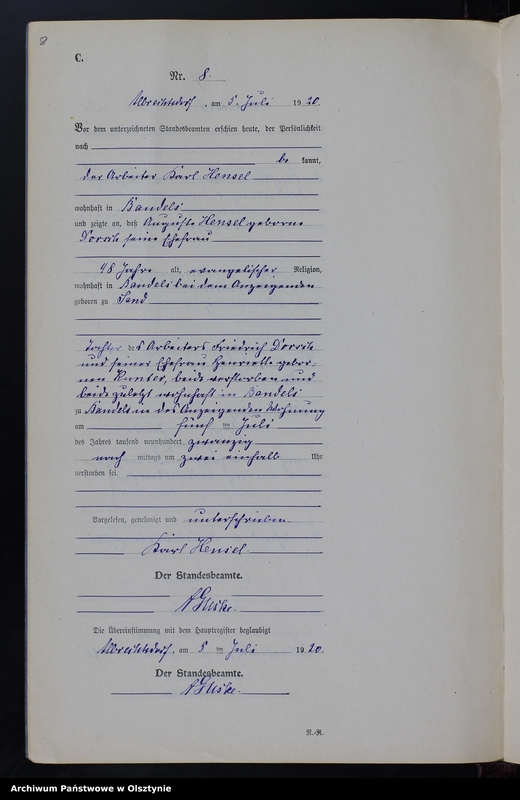 8
C.
Nr. 8.
Albrechtsdorf, am 5. Juli 1920.
Vor dem unterzeichneten Standesbeamten erschien heute, der Persönlichkeit
nach
bekannt,
der Arbeiter Karl Hensel
wohnhaft in Bandels
und zeigte an, daß Auguste Hensel geborne
seine Ehefrau
48 Jahre alt, evangelischer Religion,
wohnhaft in Bandels bei dem Anzeigenden
geboren zu Sand
Tochter des Arbeiters Friedrich
und seiner Ehefrau Henriette gebor-
nen beide verstorben und
beide zuletzt wohnhaft in Bandels
zu Bandels in des Anzeigenden Wohnung
am fünf ten Juli
des Jahres tausend neunhundert zwanzig
nach mittags um zwei einhalb Uhr
verstorben sei.
Vorgelesen, genehmigt und unterschrieben
Karl Hensel
Der Standesbeamte.
Die Übereinstimmung mit dem Hauptregister beglaubigt
Albrechtsdorf, am 5 ten Juli 1920.
Der Standesbeamte.
N.-R.
Archiwum Państwowe w Olsztynie